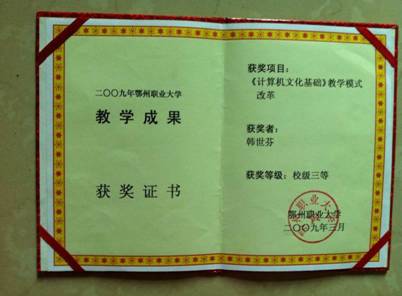 二〇〇九年鄂州职业大学
教学成果
获奖证书
获奖项目：
《计算机文化基础》教学模式
改革
获奖者：
韩世芬
获奖等级：校级三等
鄂州职业大学
二〇〇九年三月